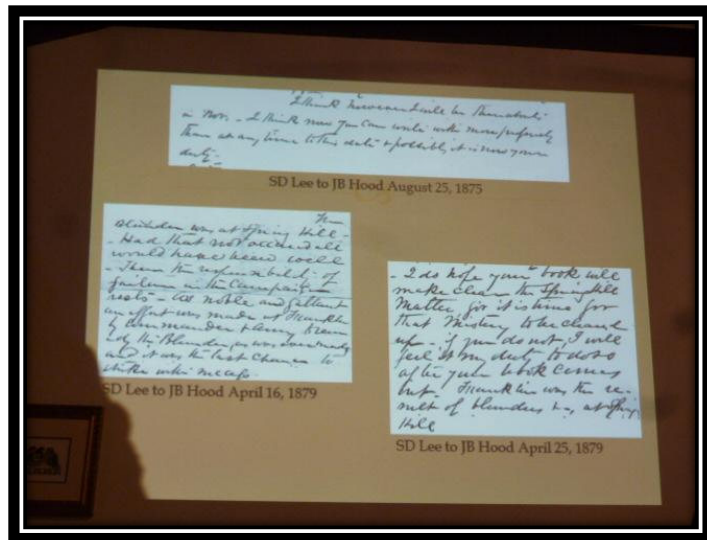 I think however I will be
in Nov. - I think now you can write with more propriety
than at any time to this date & possibly it is now your
duty.
SD Lee to JB Hood August 25, 1875
The
Blunder was at Spring Hill -
- Had that not occurred all
would have been well
- There the responsibility of
failure in the Campaign
rests - as noble and gallant
an effort was made at Franklin
by commander & Army to
remedy the Blunder, as was ever made
and it was the last chance to
strike with success
SD Lee to JB Hood April 16, 1879
- I do hope your book will
make clear the Spring Hill
Matter, for it is time for
that Mistery to be cleared
up - if you do not, I will
feel it my duty to do so
after your book comes
out. Franklin was the re-
sult of blunders at Spring
Hill
SD Lee to JB Hood April 25, 1879